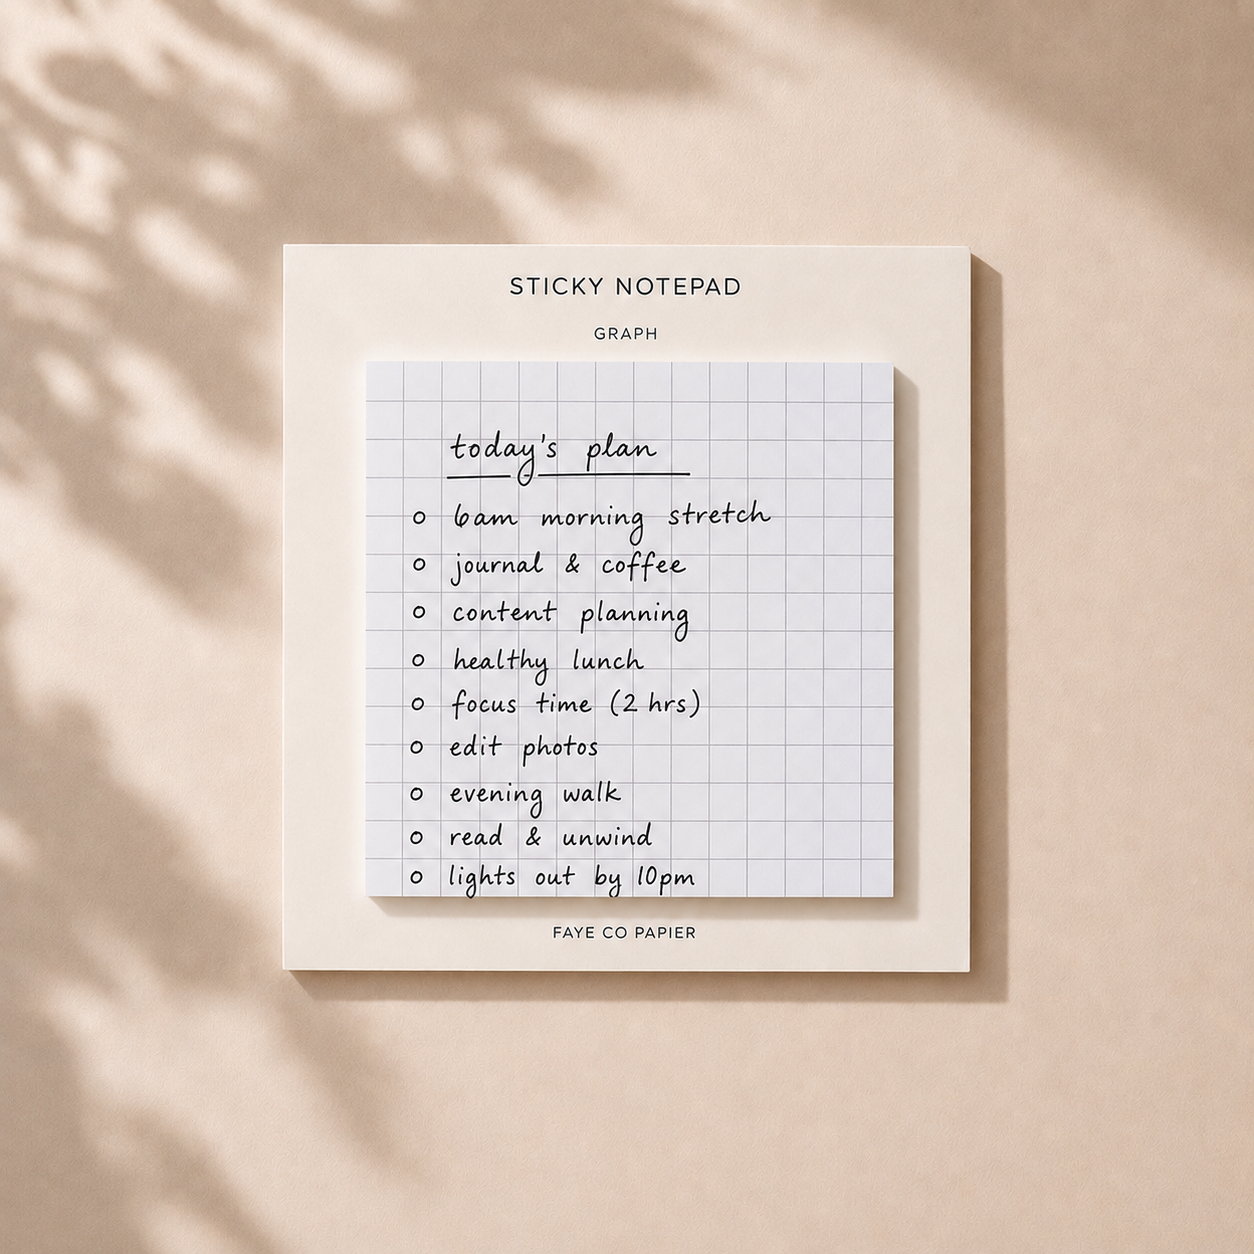 STICKY NOTEPAD
GRAPH
today's plan
○ 6am morning stretch
○ journal & coffee
○ content planning
○ healthy lunch
○ focus time (2 hrs)
○ edit photos
○ evening walk
○ read & unwind
○ lights out by 10pm
FAYE CO PAPIER